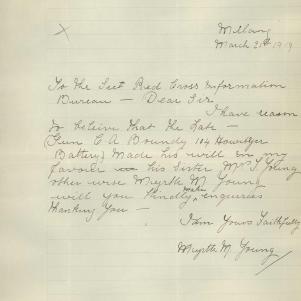 Milang
March 21st 1919
To the Sect Red Cross Information
Bureau — Dear Sir
I have reason
to believe that the Late —
(Gun. C A Boundy 104 Howitzer
Battery) Made his will in my
favour his sister Mrs. Young
other wise Myrtle M Young
will you Kindly make enquiries
thanking you —
I am Yours Faithfully
Myrtle M. Young